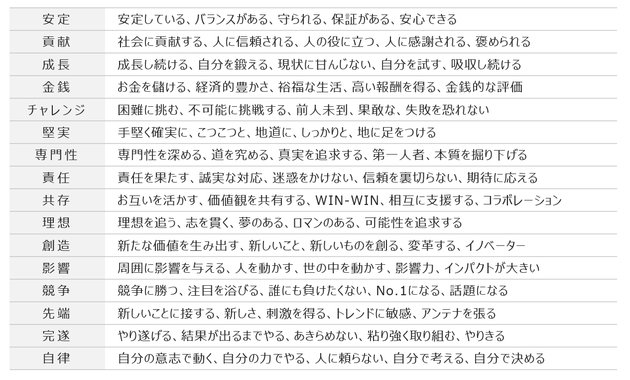 安定 安定している、バランスがある、守られる、保証がある、安心できる
貢献 社会に貢献する、人に信頼される、人の役に立つ、人に感謝される、褒められる
成長 成長し続ける、自分を鍛える、現状に甘んじない、自分を試す、吸収し続ける
金銭 お金を儲ける、経済的豊かさ、裕福な生活、高い報酬を得る、金銭的な評価
チャレンジ 困難に挑む、不可能に挑戦する、前人未到、果敢な、失敗を恐れない
堅実 手堅く確実に、こつこつと、地道に、しっかりと、地に足をつける
専門性 専門性を深める、道を究める、真実を追求する、第一人者、本質を掘り下げる
責任 責任を果たす、誠実な対応、迷惑をかけない、信頼を裏切らない、期待に応える
共存 お互いを活かす、価値観を共有する、WIN-WIN、相互に支援する、コラボレーション
理想 理想を追う、志を貫く、夢のある、ロマンのある、可能性を追求する
創造 新たな価値を生み出す、新しいこと、新しいものを創る、変革する、イノベーター
影響 周囲に影響を与える、人を動かす、世の中を動かす、影響力、インパクトが大きい
競争 競争に勝つ、注目を浴びる、誰にも負けたくない、No.1になる、話題になる
先端 新しいことに接する、新しさ、刺激を得る、トレンドに敏感、アンテナを張る
完遂 やり遂げる、結果が出るまでやる、あきらめない、粘り強く取り組む、やりきる
自律 自分の意志で動く、自分の力でやる、人に頼らない、自分で考える、自分で決める